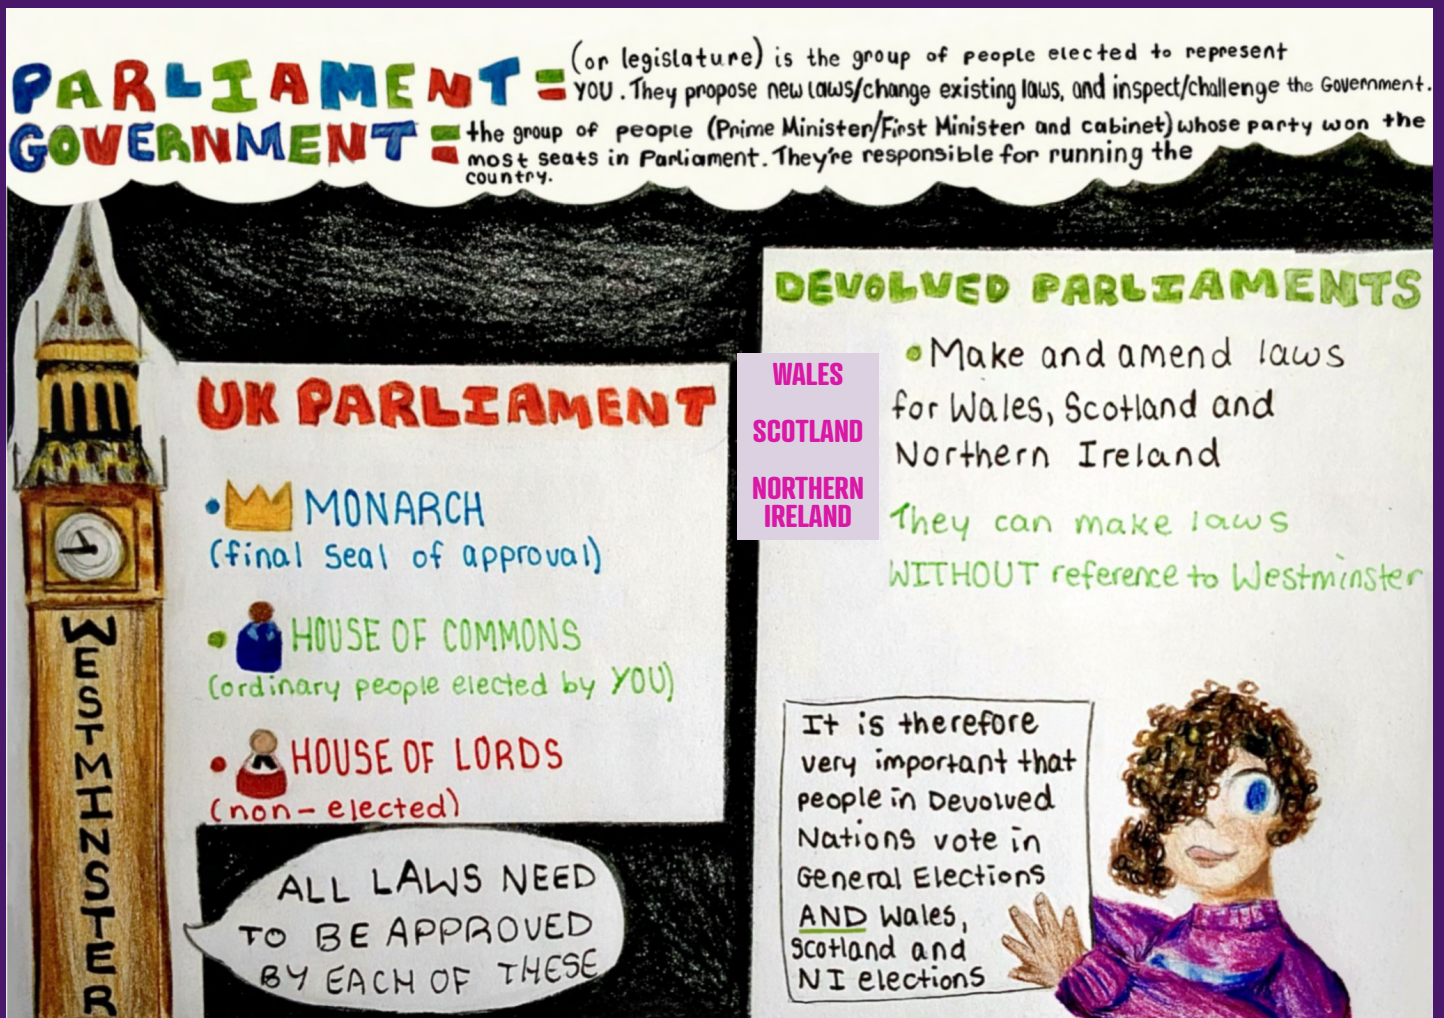 PARLIAMENT = (or legislature) is the group of people elected to represent
YOU. They propose new laws/change existing laws, and inspect/challenge the Government.
GOVERNMENT = the group of people (Prime Minister/First Minister and cabinet) whose party won the
most seats in Parliament. They're responsible for running the
country.
WESTMINSTER
UK PARLIAMENT
• MONARCH
(final seal of approval)
• HOUSE OF COMMONS
(ordinary people elected by YOU)
• HOUSE OF LORDS
(non-elected)
ALL LAWS NEED
TO BE APPROVED
BY EACH OF THESE
WALES
SCOTLAND
NORTHERN
IRELAND
DEVOLVED PARLIAMENTS
• Make and amend laws
for Wales, Scotland and
Northern Ireland
They can make laws
WITHOUT reference to Westminster
It is therefore
very important that
people in Devolved
Nations vote in
General Elections
AND Wales,
Scotland and
NI elections